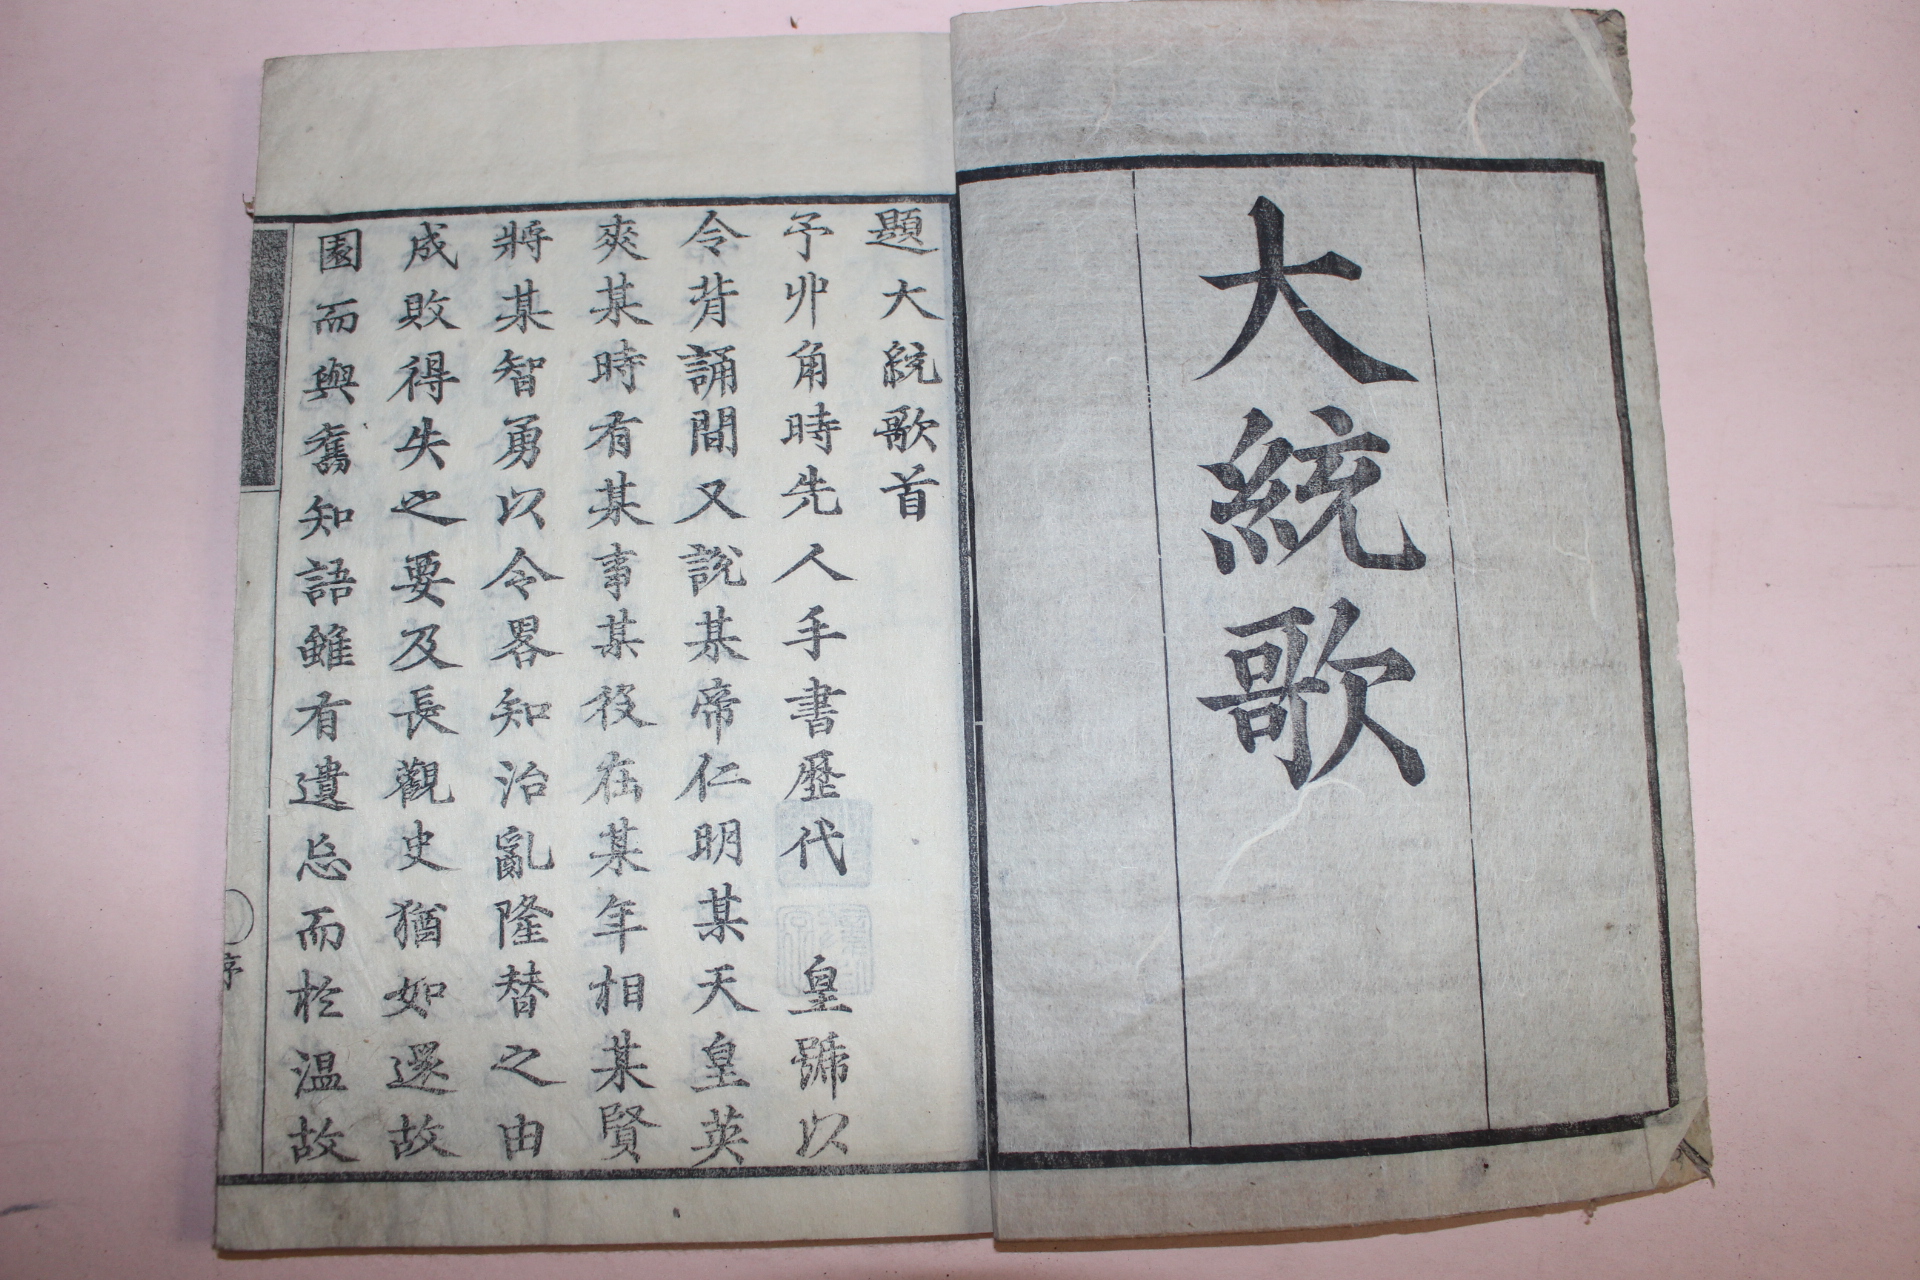 大統歌
題大統歌首
予丱角時先人手書歷代 皇號以
令背誦間又說某帝仁明某天皇英
爽某時有某事某役在某年相某賢
將某智勇以令畧知治亂隆替之由
成敗得失之要及長觀史猶如還故
園而與舊知語雖有遺忘而於溫故
序